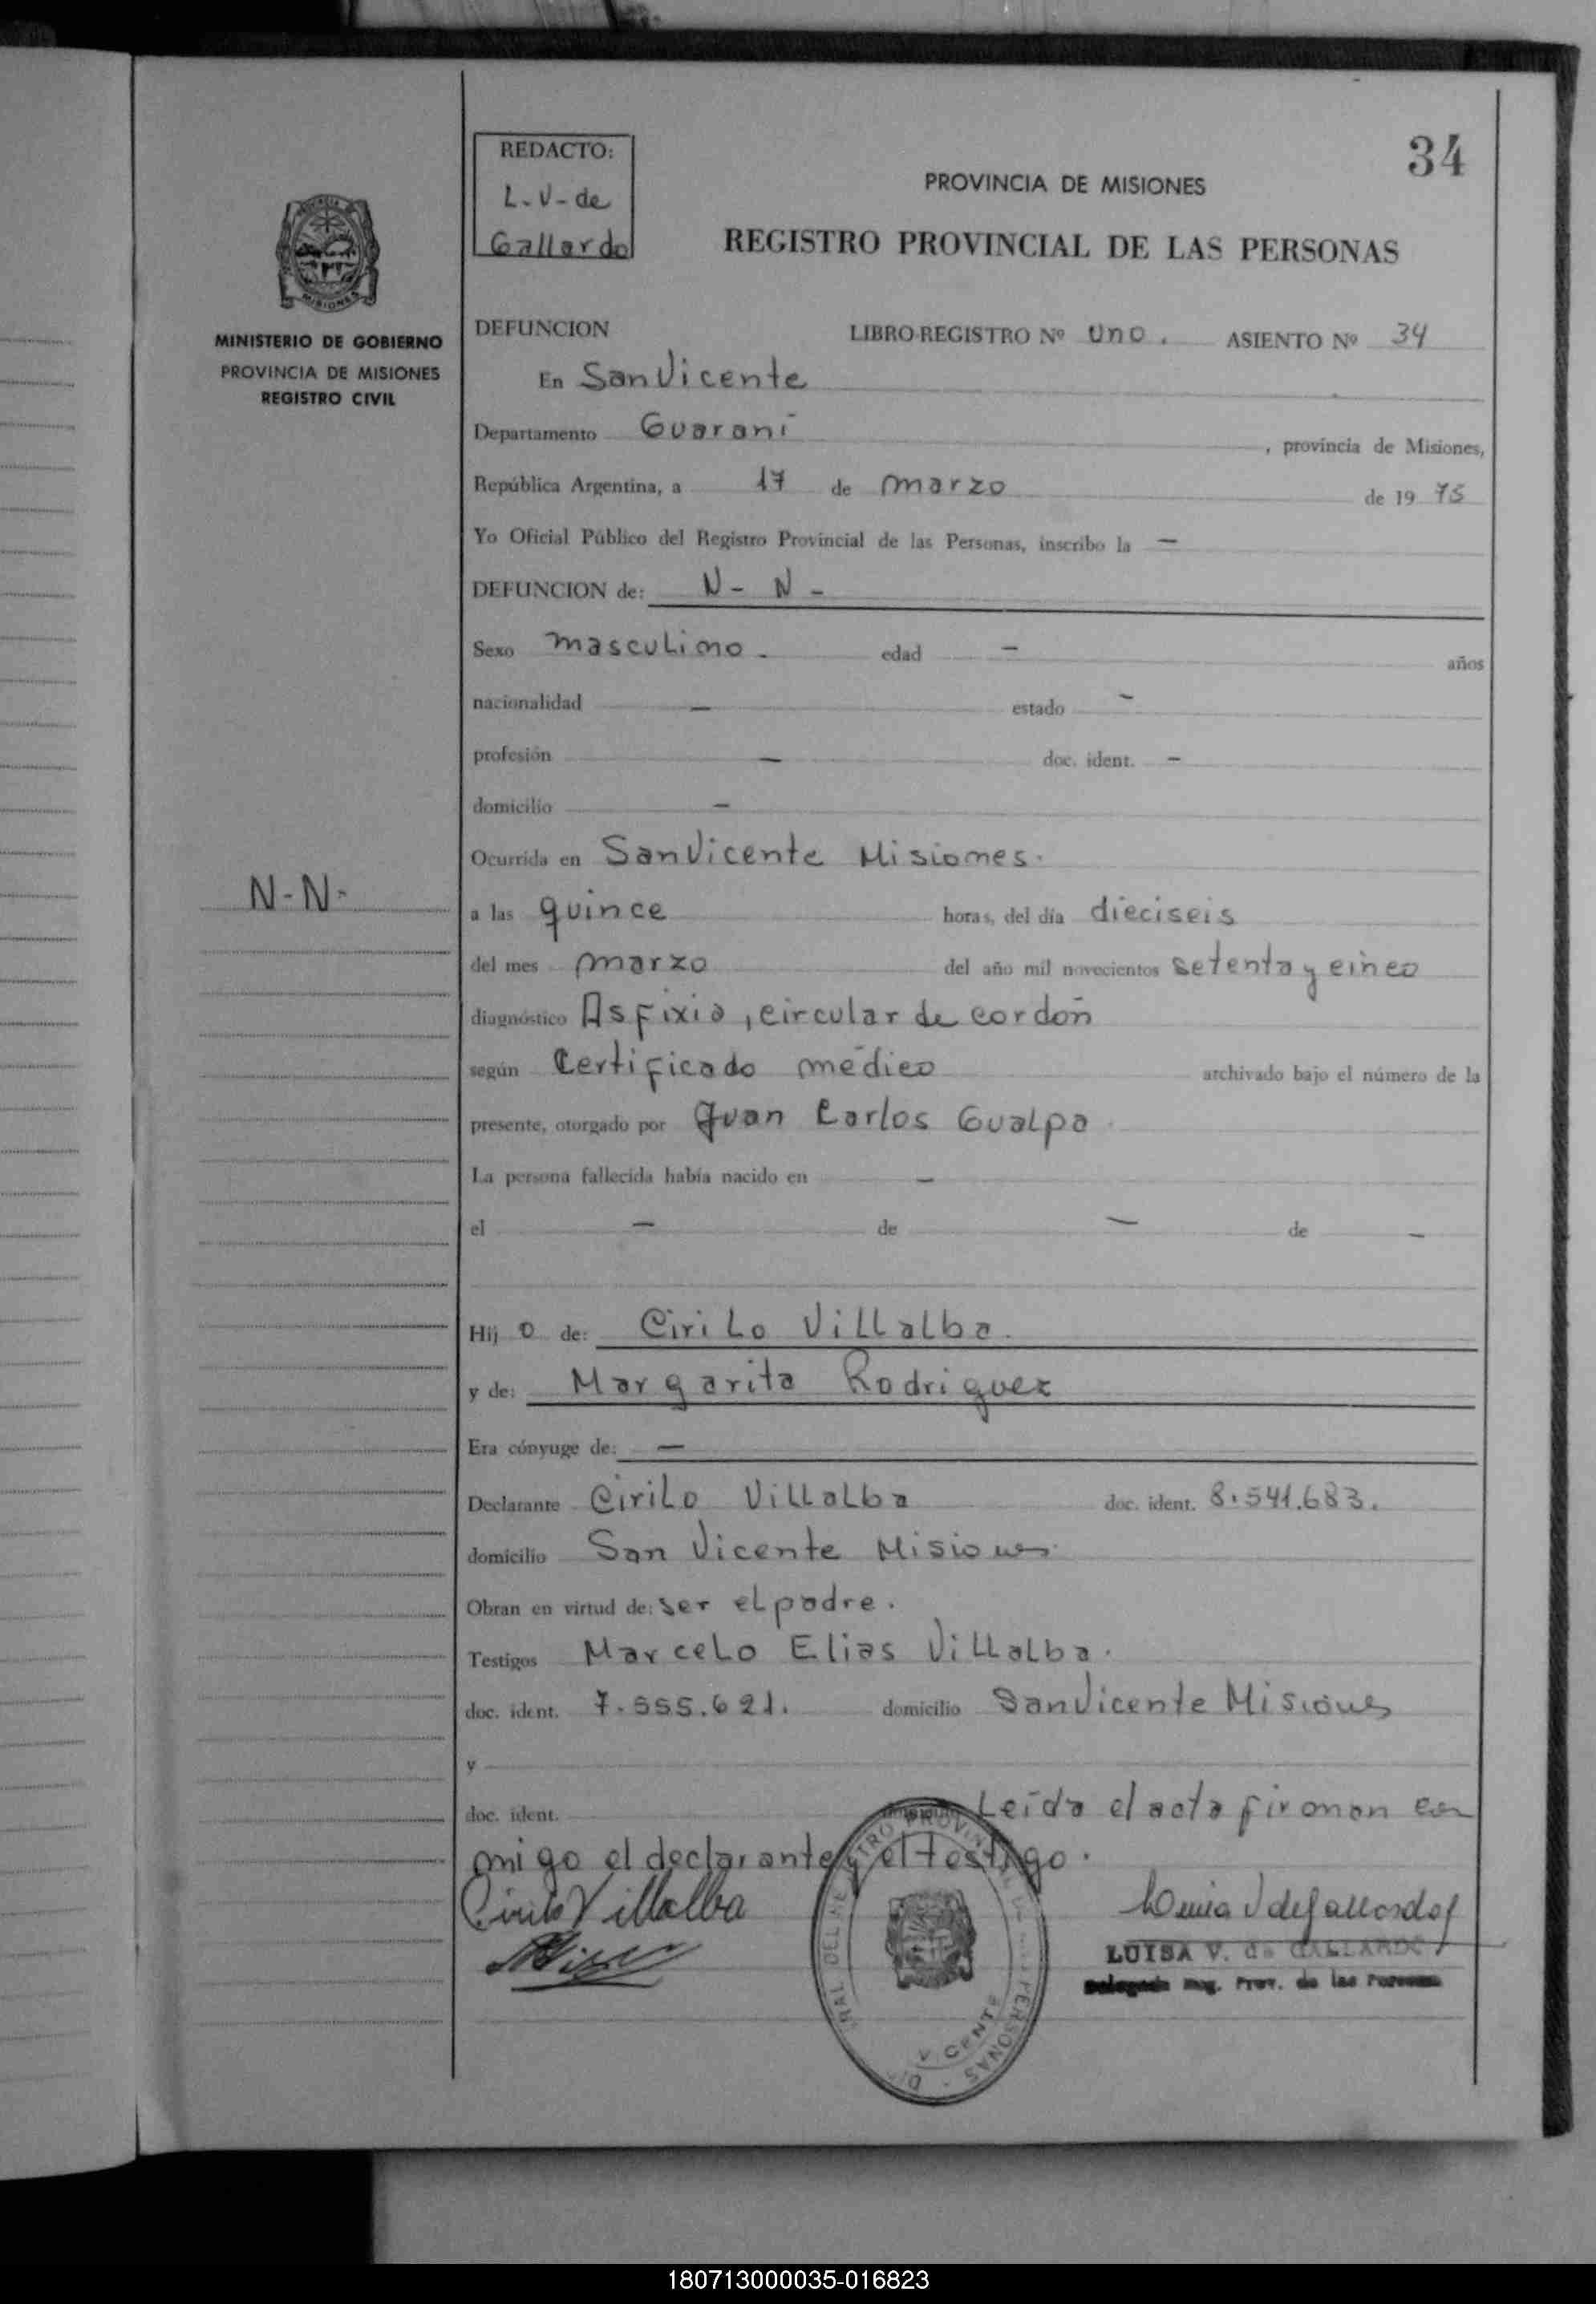 34
REDACTO:
L-V-de
Gallardo
PROVINCIA DE MISIONES
REGISTRO PROVINCIAL DE LAS PERSONAS
MISIONES
MINISTERIO DE GOBIERNO
PROVINCIA DE MISIONES
REGISTRO CIVIL
DEFUNCION LIBRO-REGISTRO Nº uno. ASIENTO Nº 34
En San Vicente
Departamento Guaraní, provincia de Misiones,
República Argentina, a 17 de marzo de 19 75
Yo Oficial Público del Registro Provincial de las Personas, inscribo la —
DEFUNCION de: N- N-
Sexo masculino. edad — años
nacionalidad — estado —
profesión — doc. ident. —
domicilio —
Ocurrida en San Vicente Misiones.
N-N-
a las quince horas, del día dieciseis
del mes marzo del año mil novecientos setenta y cinco
diagnóstico Asfixia, circular de cordón
según Certificado médico archivado bajo el número de la
presente, otorgado por Juan Carlos Gualpa
La persona fallecida había nacido en —
el — de — de —
Hij o de: Cirilo Villalba.
y de: Margarita Rodriguez
Era cónyuge de: —
Declarante Cirilo Villalba doc. ident. 8.541.683.
domicilio San Vicente Misiones.
Obran en virtud de: ser el padre.
Testigos Marcelo Elias Villalba.
doc. ident. 7.555.621. domicilio San Vicente Misiones
y
doc. ident. Leída el acta firman con
migo el declarante y el testigo.
Cirilo Villalba
Luisa V de Gallardo
LUISA V. de GALLARDO
Prov. de las Personas
180713000035-016823